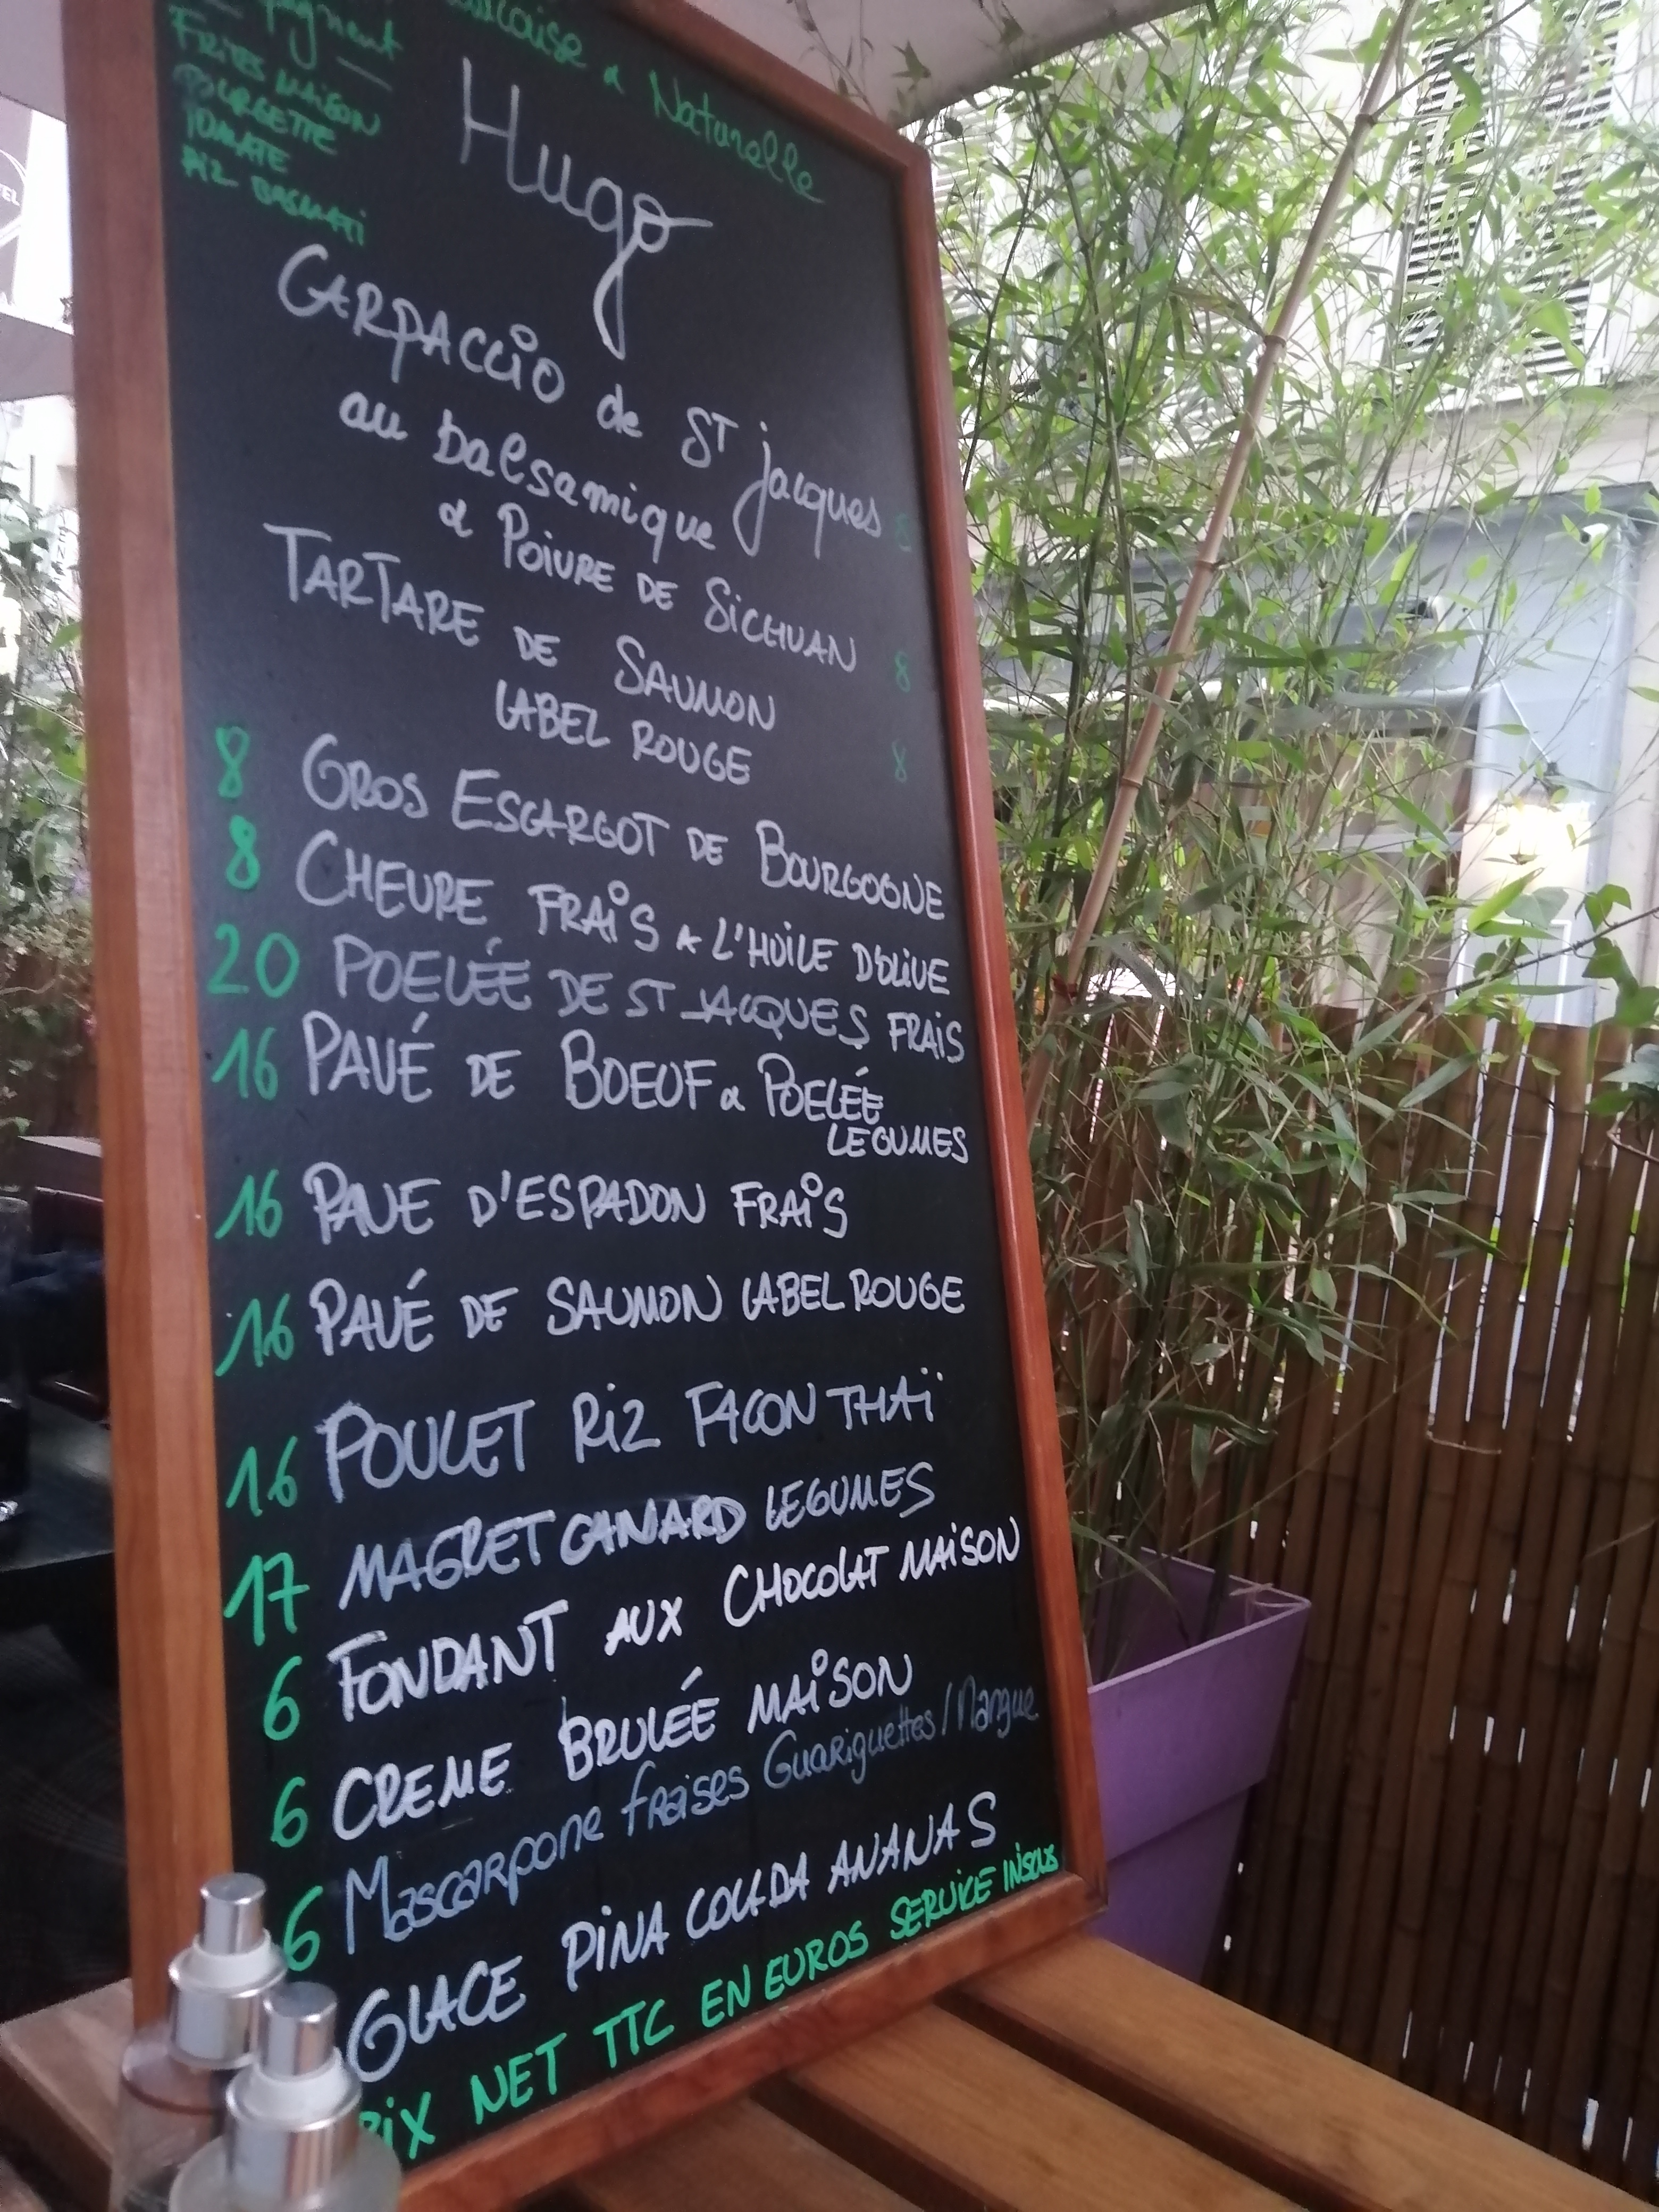 & Naturelle
FRITES MAISON
TOMATE
RIZ BASMATI
Hugo
CARPACCIO de ST jacques
au balsamique
& POIVRE DE SICHUAN 8
TARTARE DE SAUMON
LABEL ROUGE 8
8 GROS ESCARGOT DE BOURGOGNE
8 CHEVRE FRAIS A L'HUILE D'OLIVE
20 POELÉE DE ST JACQUES FRAIS
16 PAVÉ DE BOEUF & POELÉE
LEGUMES
16 PAVE D'ESPADON FRAIS
16 PAVÉ DE SAUMON LABEL ROUGE
16 POULET RIZ FACON THAÏ
17 MAGRET CANARD LEGUMES
6 FONDANT AUX CHOCOLAT MAISON
6 CREME BRULÉE MAISON
6 Mascarpone fraises Guariguettes / Mangue
GLACE PINA COLADA ANANAS
NET TTC EN EUROS SERVICE